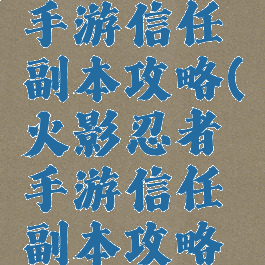 手游信任
副本攻略(
火影忍者
手游信任
副本攻略